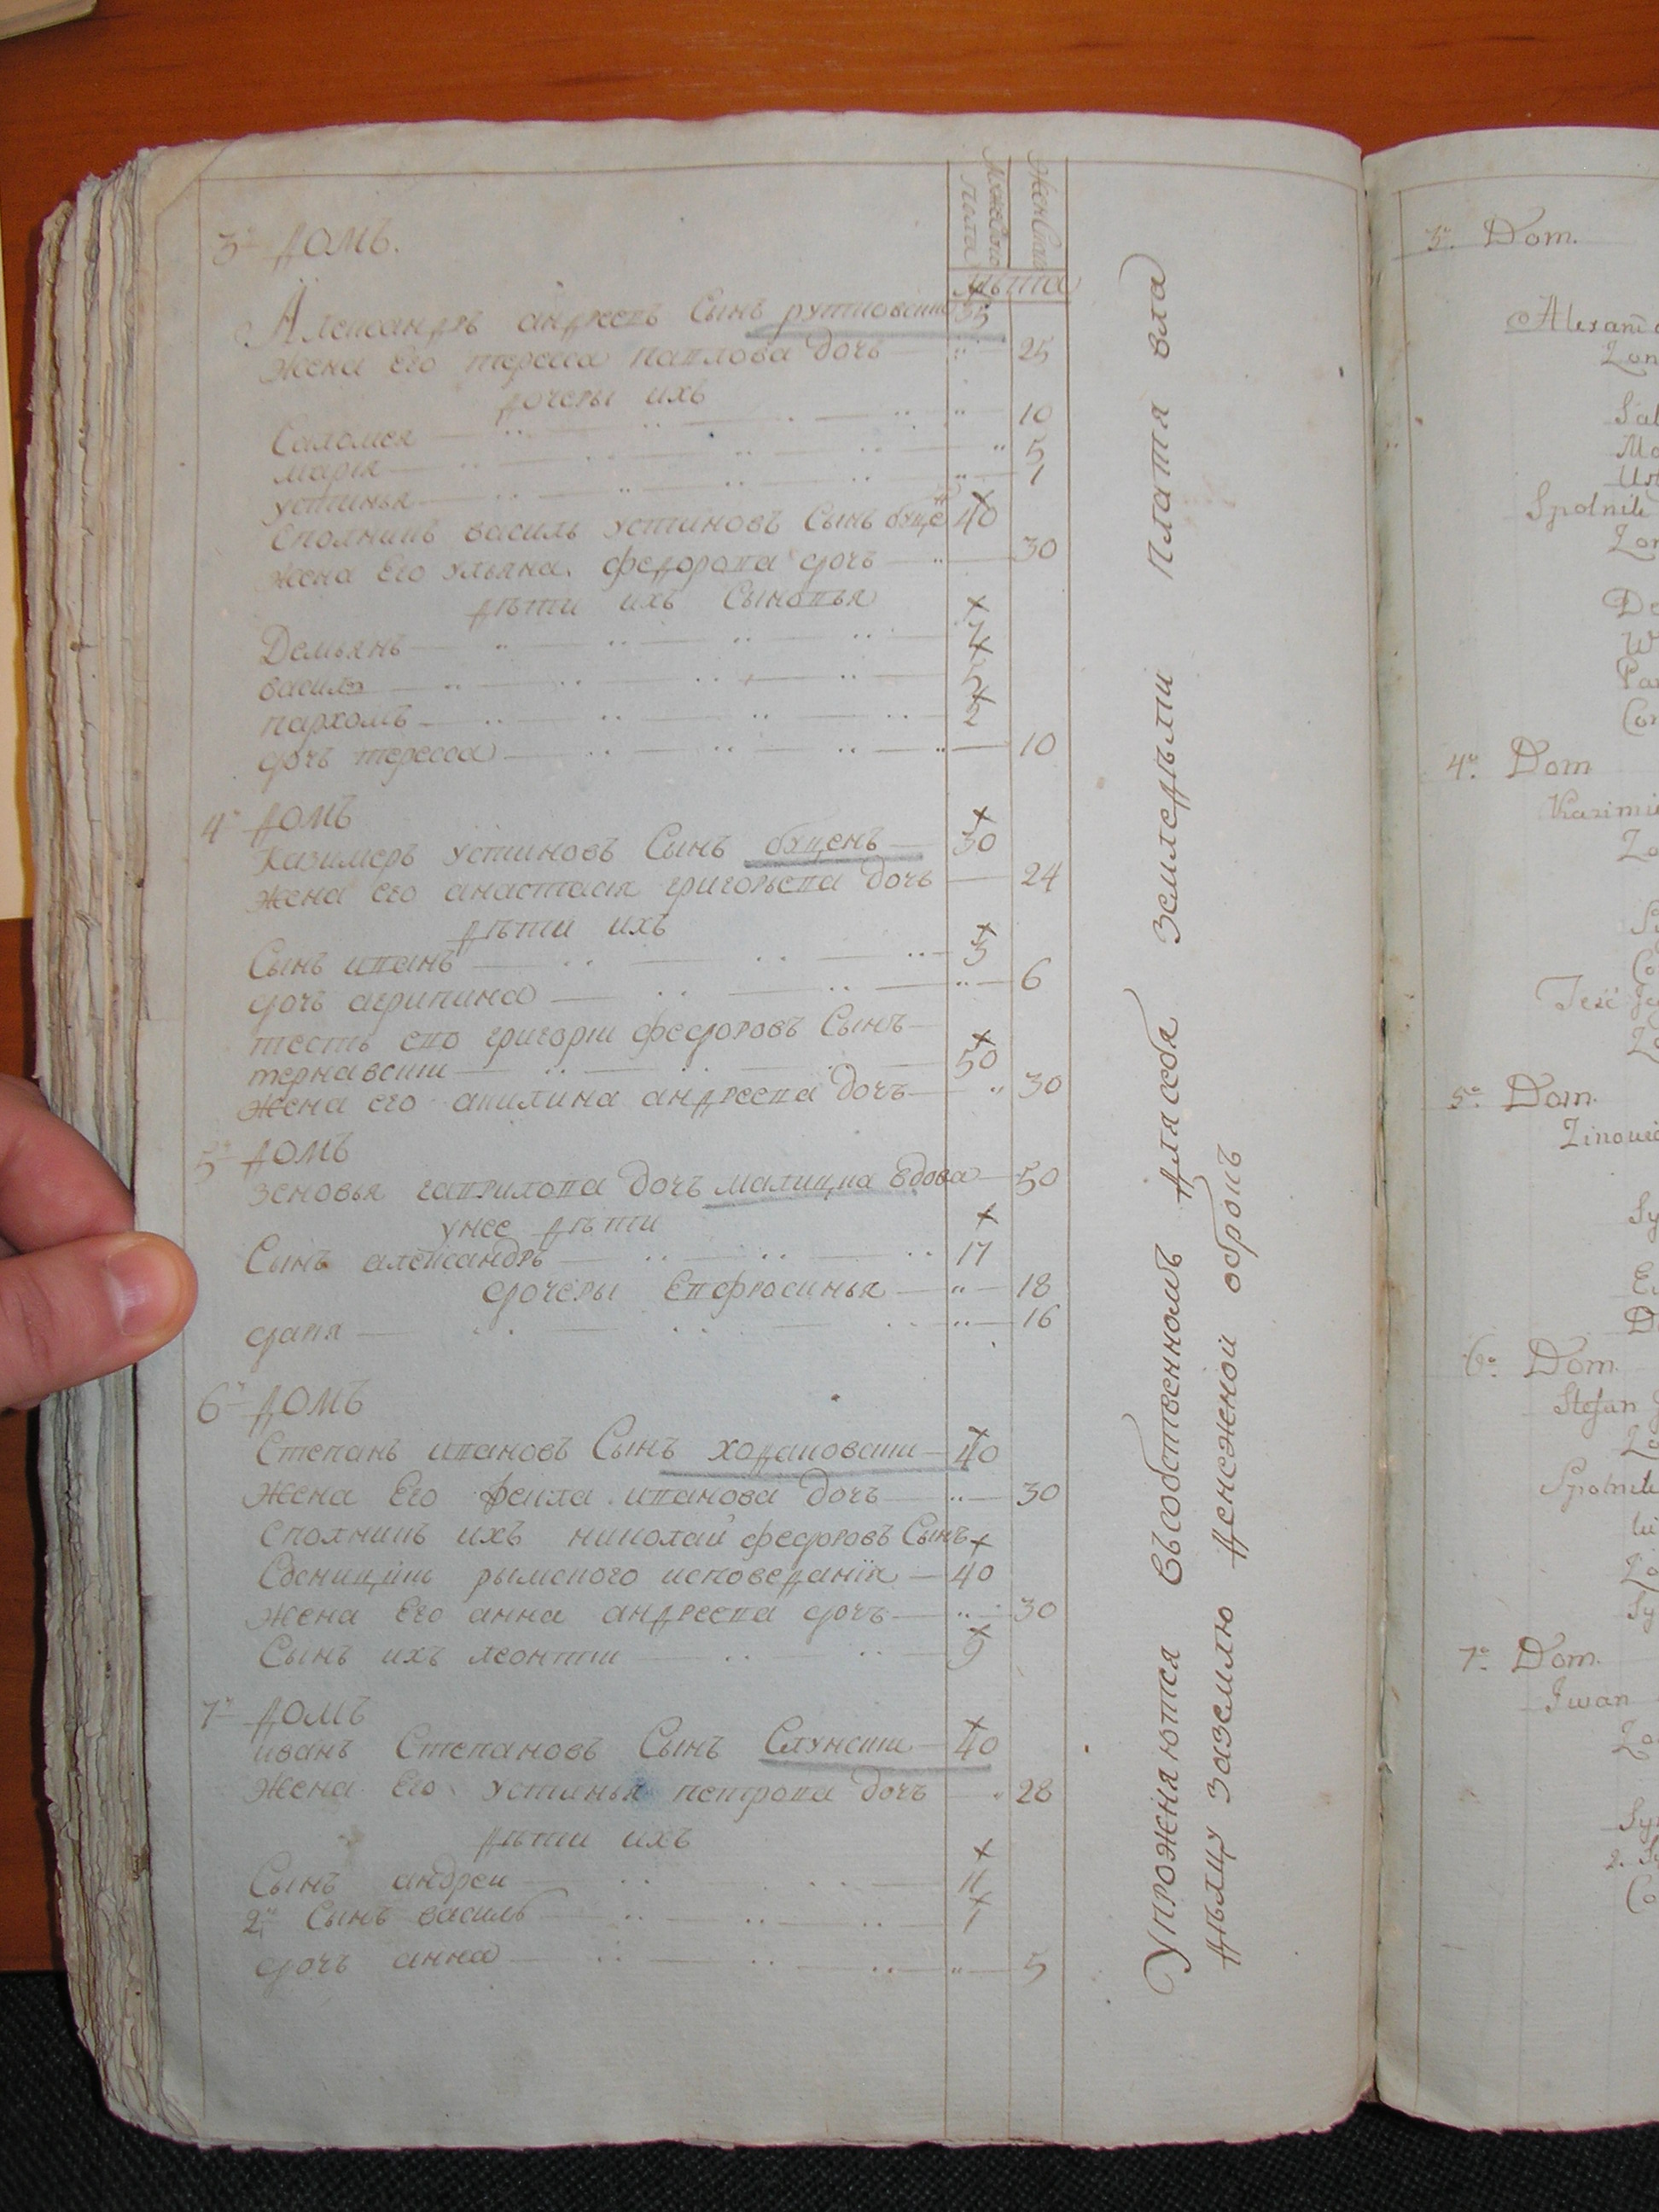 Мужеска пола
Женска
лѣта
3й домъ.
Александръ андреевъ Сынъ рутковский 35
жена Его тересса павлова дочь 25
дочеры ихъ
Саломея 10
мария 5
устинья 1
Сполникъ василь устиновъ Сынъ 40
жена Его ульяна федорова дочь 30
дѣти ихъ Сыновья
Демьянъ 7
василь 5
пархомъ 2
дочь тересса 10
4й домъ
Казимеръ устиновъ Сынъ буценъ 30
жена его анастасия григорьева дочь 24
дѣти ихъ
Сынъ иванъ 5
дочь агрипина 6
тесть его григорiи федоровъ Сынъ
тернавски 50
жена его акилина андреева дочь 30
5й домъ
зеновья гаврилова дочь малицка вдова 50
унее дѣти
Сынъ александръ 17
дочеры Евфросинья 18
дарья 16
6й домъ
Степанъ ивановъ Сынъ ходаковски 40
жена Его фекла иванова дочь 30
Сполникъ ихъ николай федоровъ Сынъ
рымского исповеданiя 40
жена Его анна андреева дочь 30
Сынъ ихъ леонтии 9
7й домъ
иванъ Степановъ Сынъ Слунски 40
жена Его устинья петрова дочь 28
дѣти ихъ
Сынъ андреи 11
2й Сынъ василь 1
дочь анна 5
Упрожняются Въсобственномъ Длясебя Земледѣлии Платя вла
дѣлцу Заземлю Денежной оброкъ
3o. Dom.
Zon
Spolnik
Zon
4o. Dom
5o. Dom.
6o. Dom.
Stefan
Spolnik
7o. Dom.
Iwan